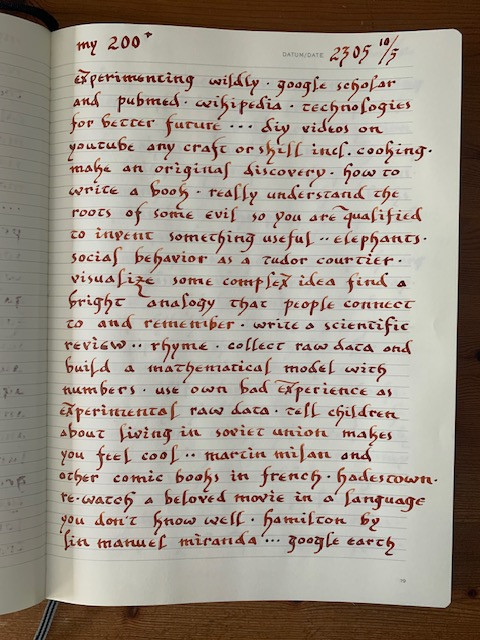 my 200+ DATUM/DATE 2305 10/5
experimenting wildly · google scholar
and pubmed · wikipedia · technologies
for better future ··· diy videos on
youtube any craft or skill incl. cooking·
make an original discovery · how to
write a book · really understand the
roots of some evil so you are qualified
to invent something useful ·· elephants·
social behavior as a tudor courtier ·
visualize some complex idea find a
bright analogy that people connect
to and remember · write a scientific
review ·· rhyme · collect raw data and
build a mathematical model with
numbers · use own bad experience as
experimental raw data · tell children
about living in soviet union makes
you feel cool ·· martin milan and
other comic books in french · hadestown·
re-watch a beloved movie in a language
you don't know well · hamilton by
lin manuel miranda ··· google earth